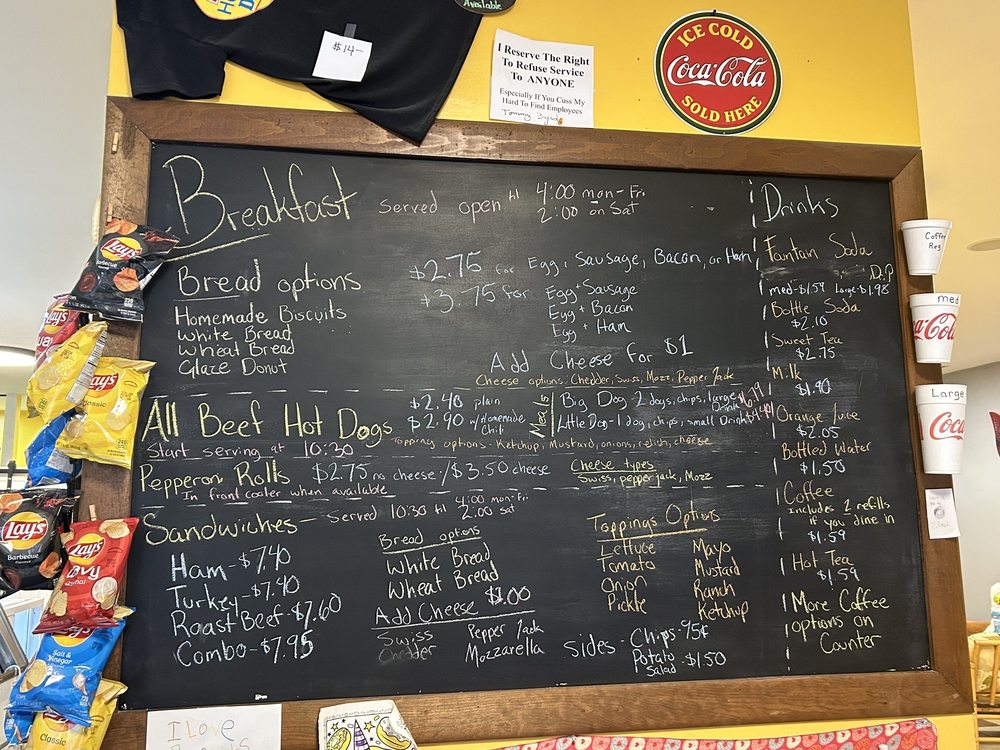 Available
$14-
I Reserve The Right
To Refuse Service
To ANYONE
Especially If You Cuss My
Hard To Find Employees
ICE COLD
Coca-Cola
SOLD HERE
Breakfast
Served open til 4:00 mon-Fri
2:00 on Sat
Bread options
Homemade Biscuits
White Bread
Wheat Bread
Glaze Donut
$2.75 for Egg, Sausage, Bacon, or Ham
$3.75 for Egg + Sausage
Egg + Bacon
Egg + Ham
Add Cheese for $1
Cheese options: Chedder, Swiss, Mozz, Pepper Jack
All Beef Hot Dogs
Start serving at 10:30
$2.40 plain
$2.90 w/Homemade
Chili
Meals
Big Dog - 2 dogs, chips, large
Drink
Little Dog - 1 dog, chips, small Drink
Topping options - Ketchup, Mustard, onions, relish, cheese
Pepperoni Rolls $2.75 no cheese / $3.50 cheese
In front cooler when available
Cheese types
Swiss, pepper jack, Mozz
Sandwiches - Served 10:30 til 4:00 mon-Fri
2:00 sat
Ham - $7.40
Turkey - $7.40
Roast Beef - $7.60
Combo - $7.95
Bread options
White Bread
Wheat Bread
Add Cheese $1.00
Swiss Pepper Jack
Chedder Mozzarella
Toppings Options
Lettuce Mayo
Tomato Mustard
Onion Ranch
Pickle Ketchup
Sides - Chips - 95¢
Potato
Salad - $1.50
Drinks
Fountain Soda
med-$1.59 Large-$1.98
Bottle Soda
$2.10
Sweet Tea
$2.75
Milk
$1.90
Orange Juice
$2.05
Bottled Water
$1.50
Coffee
includes 2 refills
if you dine in
$1.59
Hot Tea
$1.59
More Coffee
options on
Counter
Coffee
Reg
med
Coca-Cola
Large
Coca-Cola
Lay's
Barbecue
Lay's
Lay's
Lay's
Classic
Lay's
Barbecue
Lay's
Lay's
Salt &
Vinegar
Classic
I Love